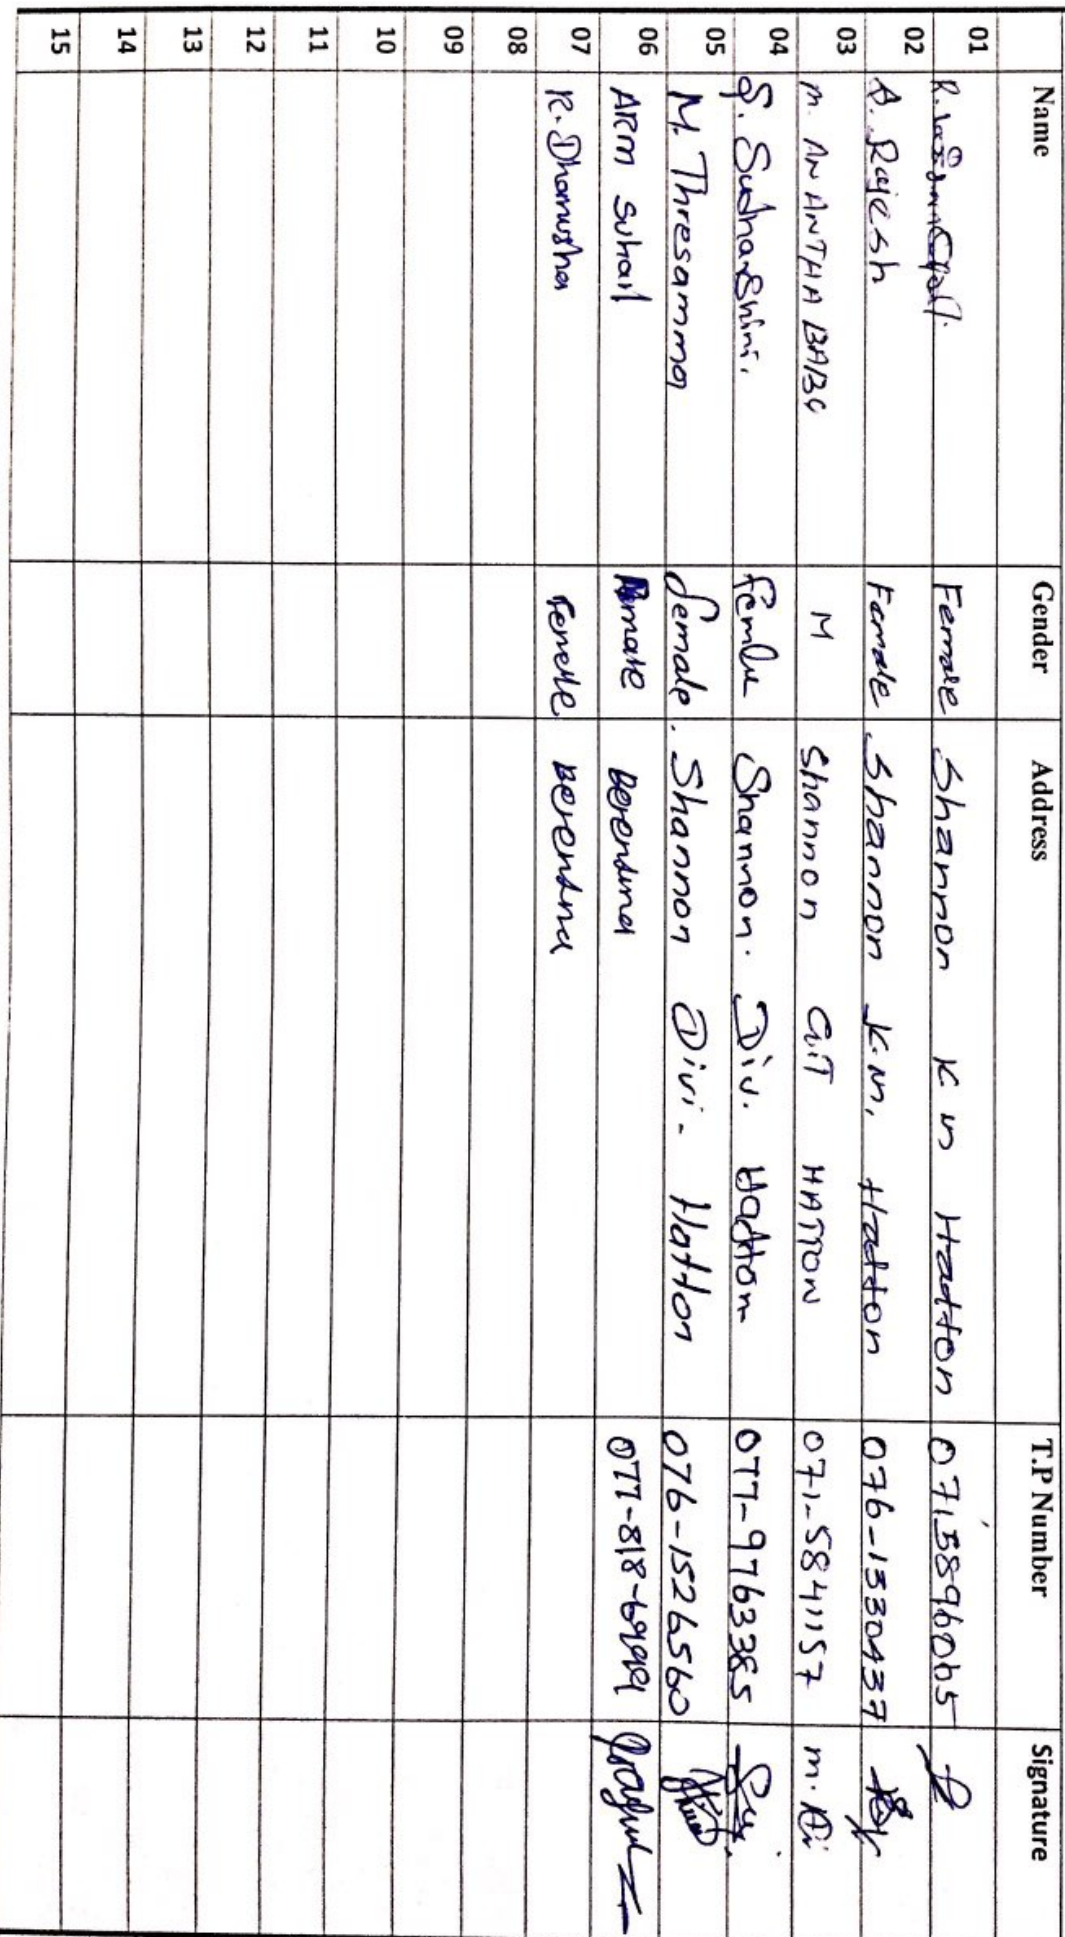 Name Gender Address T.P Number Signature
01 R. Female Shannon K M Hatton
02 Rajesh Female Shannon K.M. Hatton 076-1330437
03 M. ANANTHA BABU M Shannon G.T HATTON 071-5841157 m.
04 S. Sudharshini. Shannon. Div. Hatton 077-9763385
05 M. Thresamma female. Shannon Divi- Hatton 076-1526560
06 ARM Suhail male Berendina
07 R. Dhanusha Female Berendina
08
09
10
11
12
13
14
15